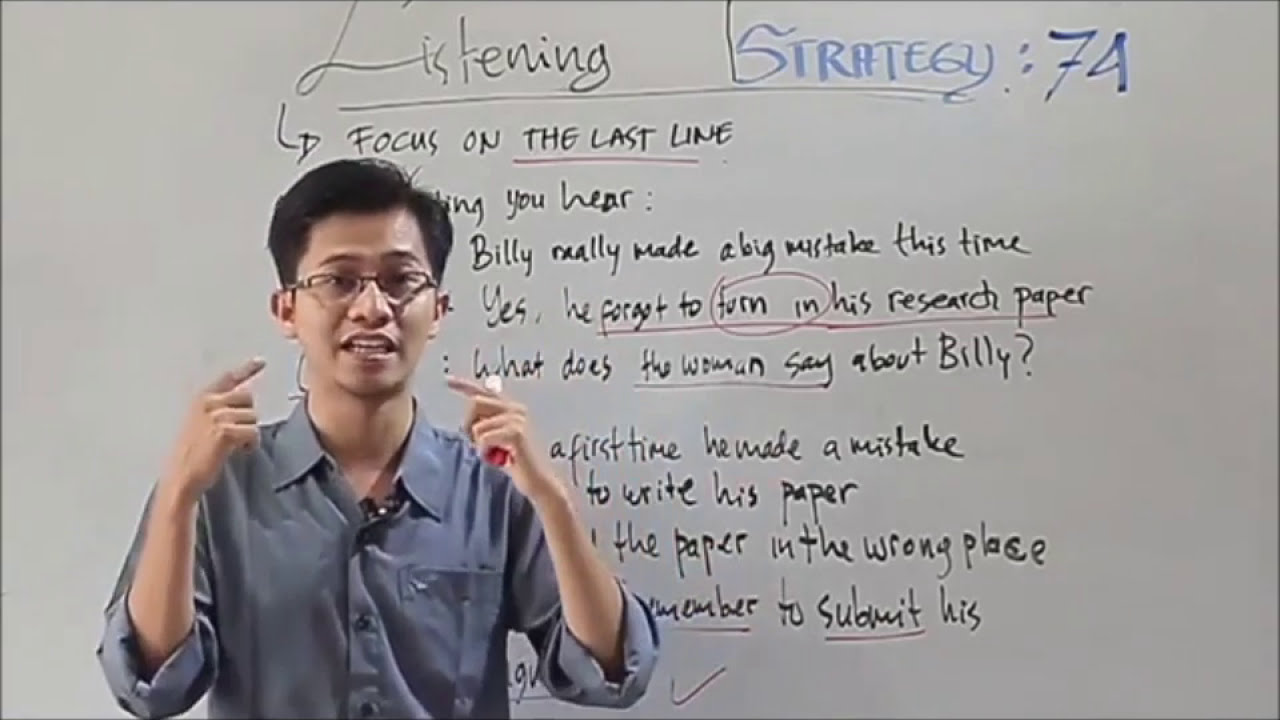 Listening STRATEGY: 74
FOCUS ON THE LAST LINE
you hear:
Billy really made a big mistake this time
Yes, he forgot to turn in his research paper
: What does the woman say about Billy?
a first time he made a mistake
to write his paper
the paper in the wrong place
to submit his